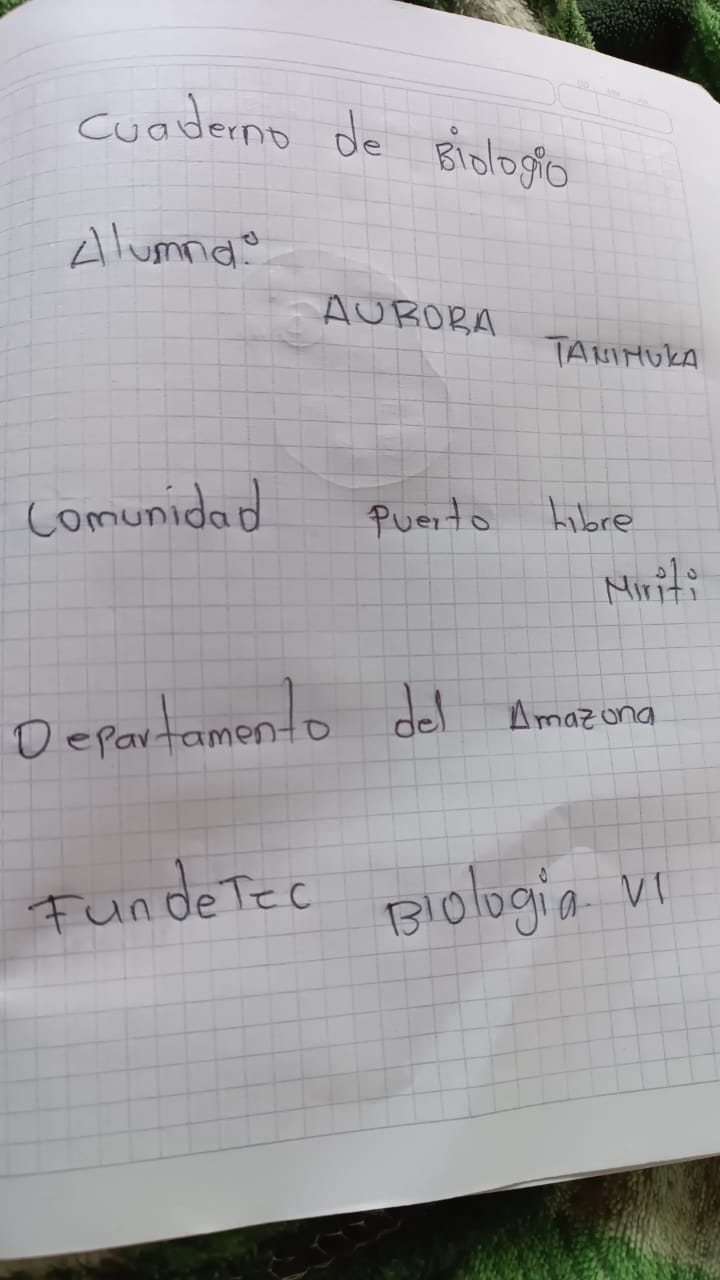 Cuaderno de Biologio
Alumna:
AURORA TANIMUKA
Comunidad Puerto Libre
Miriti
Departamento del Amazona
FundeTEC Biologia VI